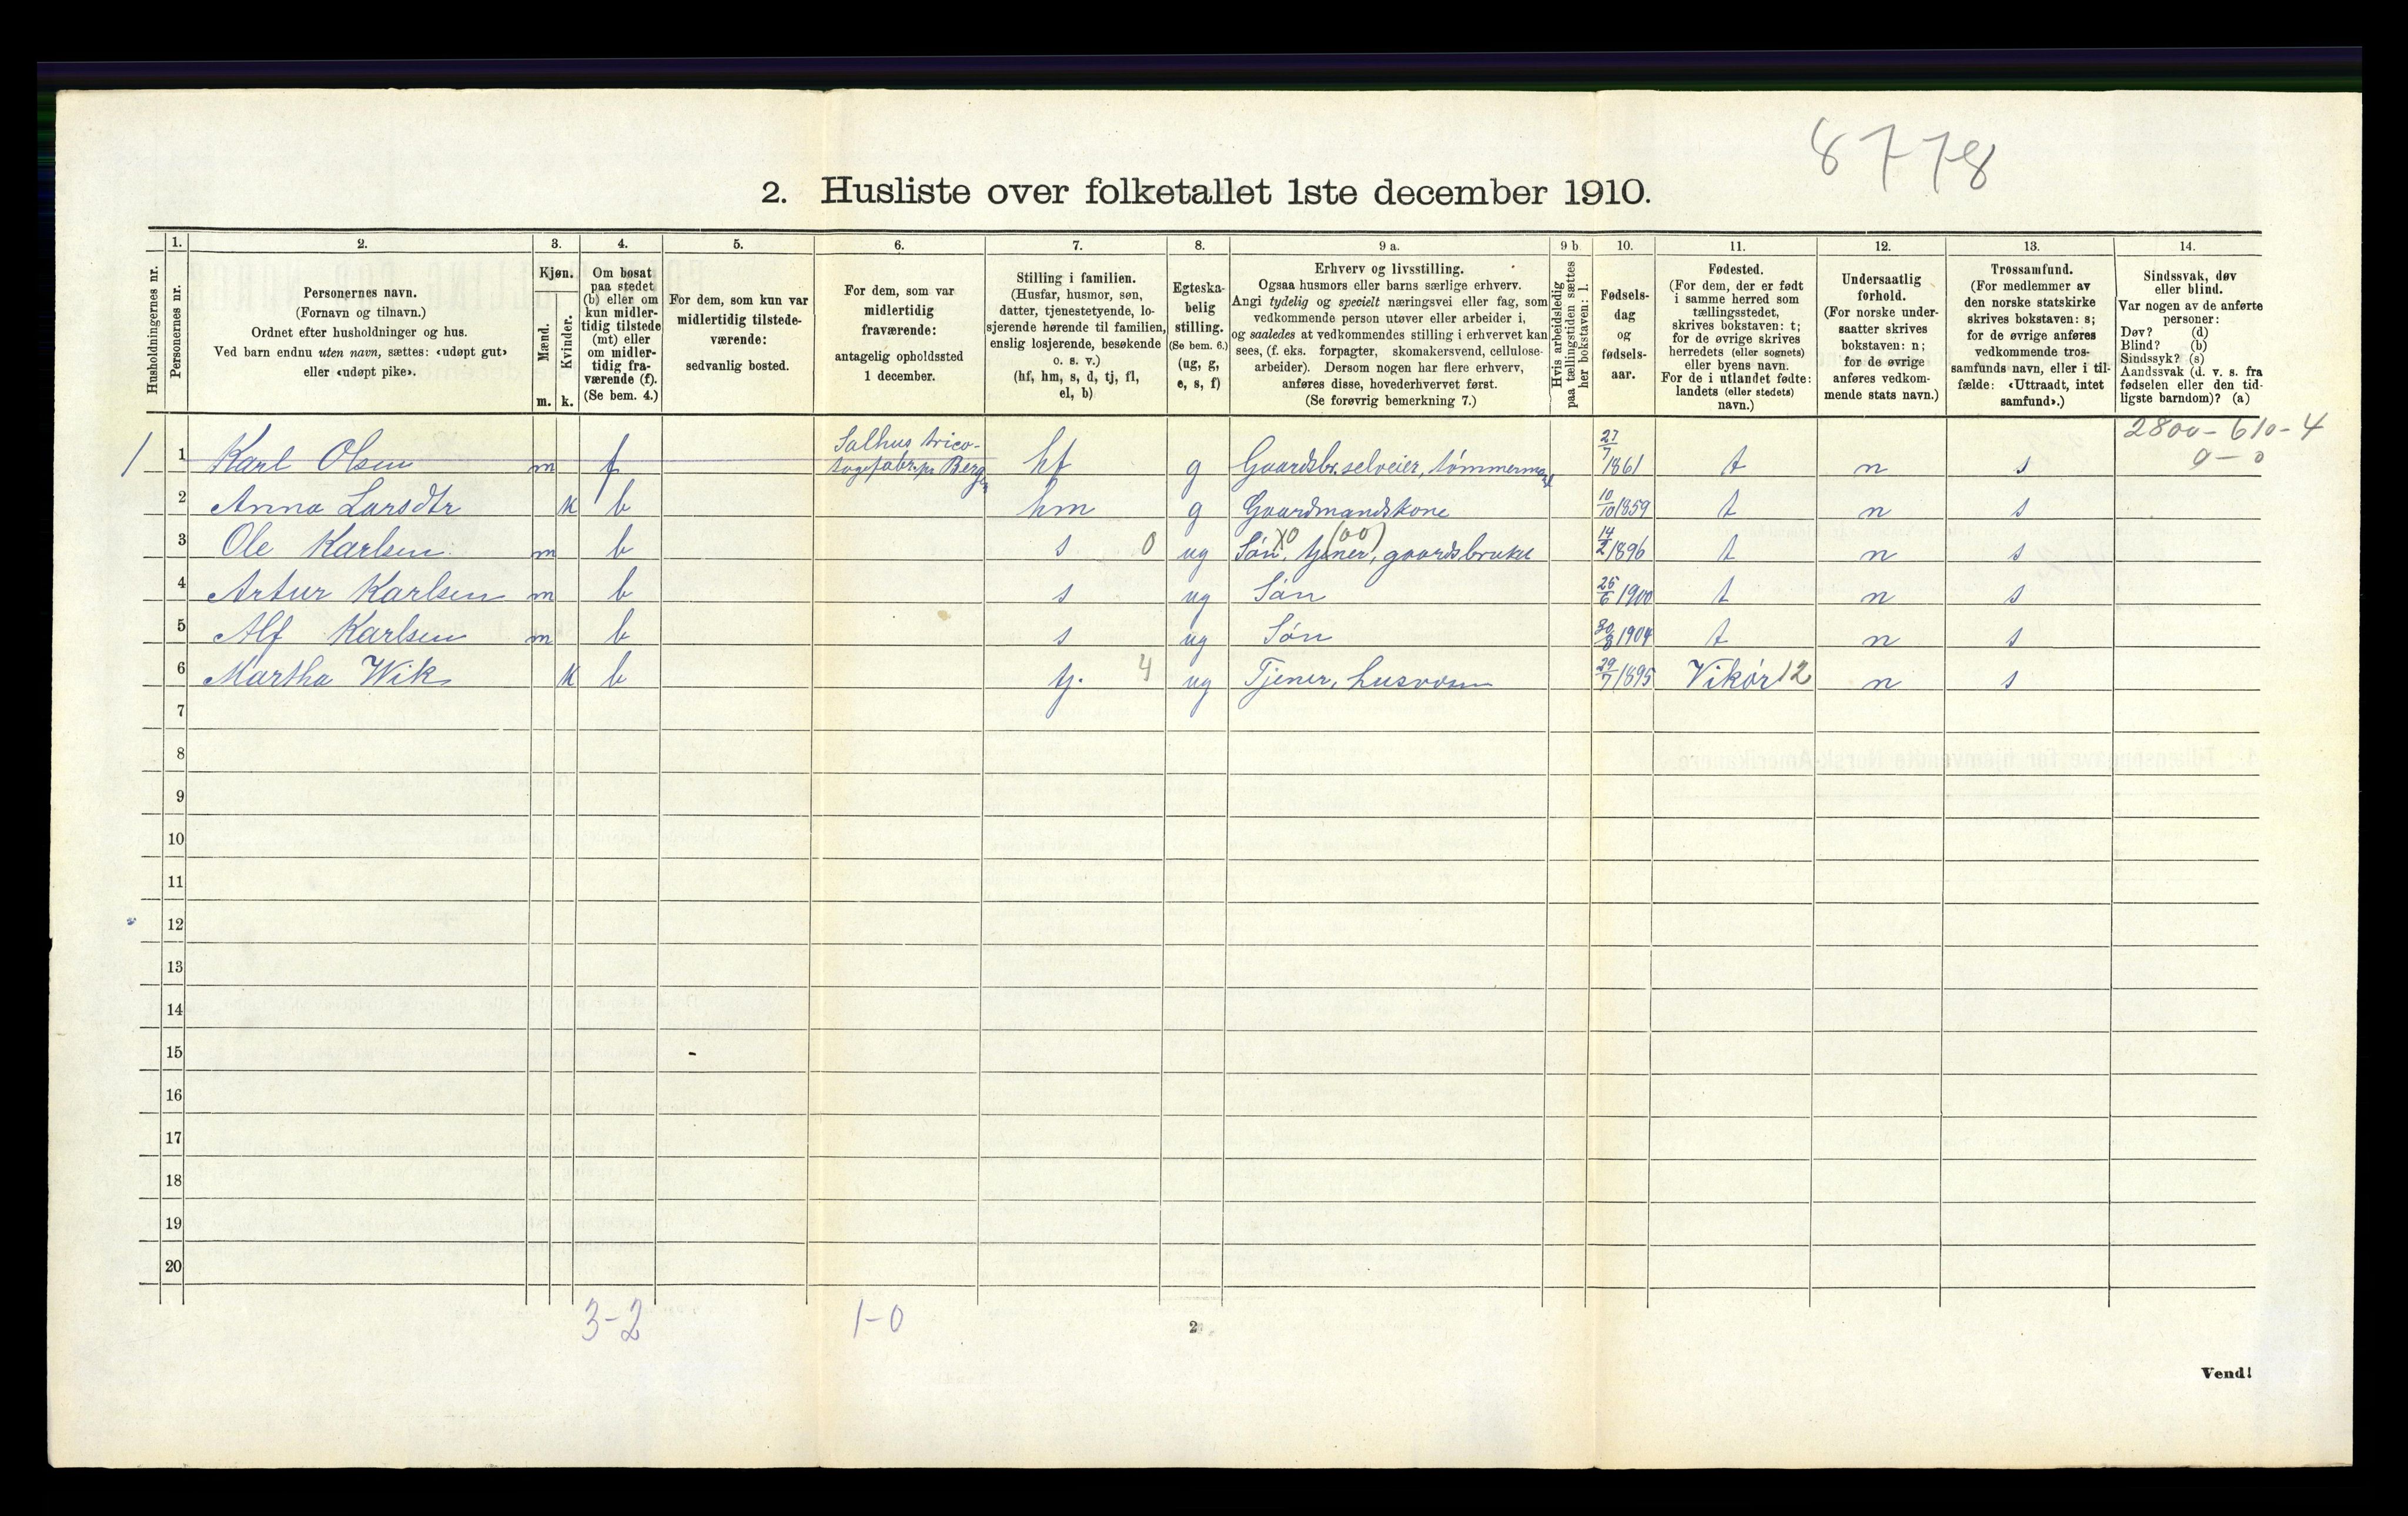 8778
2. Husliste over folketallet 1ste december 1910.
1. 2. 3. 4. 5. 6. 7. 8. 9 a. 9 b. 10. 11. 12. 13. 14.
Husholdningernes nr.
Personernes nr.
Personernes navn.
(Fornavn og tilnavn.)
Ordnet efter husholdninger og hus.
Ved barn endnu uten navn, sættes: «udøpt gut»
eller «udøpt pike».
Kjøn.
Mænd.
Kvinder.
m. k.
Om bosat
paa stedet
(b) eller om
kun midler-
tidig tilstede
(mt) eller
om midler-
tidig fra-
værende (f).
(Se bem. 4.)
For dem, som kun var
midlertidig tilstede-
værende:
sedvanlig bosted.
For dem, som var
midlertidig
fraværende:
antagelig opholdssted
1 december.
Stilling i familien.
(Husfar, husmor, søn,
datter, tjenestetyende, lo-
sjerende hørende til familien,
enslig losjerende, besøkende
o. s. v.)
(hf, hm, s, d, tj, fl,
el, b)
Egteska-
belig
stilling.
(Se bem. 6.)
(ug, g,
e, s, f)
Erhverv og livsstilling.
Ogsaa husmors eller barns særlige erhverv.
Angi tydelig og specielt næringsvei eller fag, som
vedkommende person utøver eller arbeider i,
og saaledes at vedkommendes stilling i erhvervet kan
sees, (f. eks. forpagter, skomakersvend, cellulose-
arbeider). Dersom nogen har flere erhverv,
anføres disse, hovederhvervet først.
(Se forøvrig bemerkning 7.)
Hvis arbeidsledig
paa tællingstiden sættes
her bokstaven: l.
Fødsels-
dag
og
fødsels-
aar.
Fødested.
(For dem, der er født
i samme herred som
tællingsstedet,
skrives bokstaven: t;
for de øvrige skrives
herredets (eller sognets)
eller byens navn.
For de i utlandet fødte:
landets (eller stedets)
navn.)
Undersaatlig
forhold.
(For norske under-
saatter skrives
bokstaven: n;
for de øvrige
anføres vedkom-
mende stats navn.)
Trossamfund.
(For medlemmer av
den norske statskirke
skrives bokstaven: s;
for de øvrige anføres
vedkommende tros-
samfunds navn, eller i til-
fælde: «Uttraadt, intet
samfund».)
Sindssvak, døv
eller blind.
Var nogen av de anførte
personer:
Døv? (d)
Blind? (b)
Sindssyk? (s)
Aandssvak (d. v. s. fra
fødselen eller den tid-
ligste barndom)? (a)
2800-610-4
0-0
1 1 Karl Olsen m f Salhus trico-
tagefabr. pr Bergen hf g Gaardsbr. selveier, tømmermand 27/7 1861 t n s
2 Anna Larsdtr k b hm g Gaardmandskone 10/10 1859 t n s
3 Ole Karlsen m b s 0 ug Søn, tjener, gaardsbruket X0 (00) 14/2 1896 t n s
4 Artur Karlsen m b s ug Søn 25/6 1900 t n s
5 Alf Karlsen m b s ug Søn 30/8 1904 t n s
6 Martha Wik k b tj. 4 ug Tjener, husvæsen 29/7 1895 Vikör 12 n s
7
8
9
10
11
12
13
14
15
16
17
18
19
20
3-2 1-0
2
Vend!